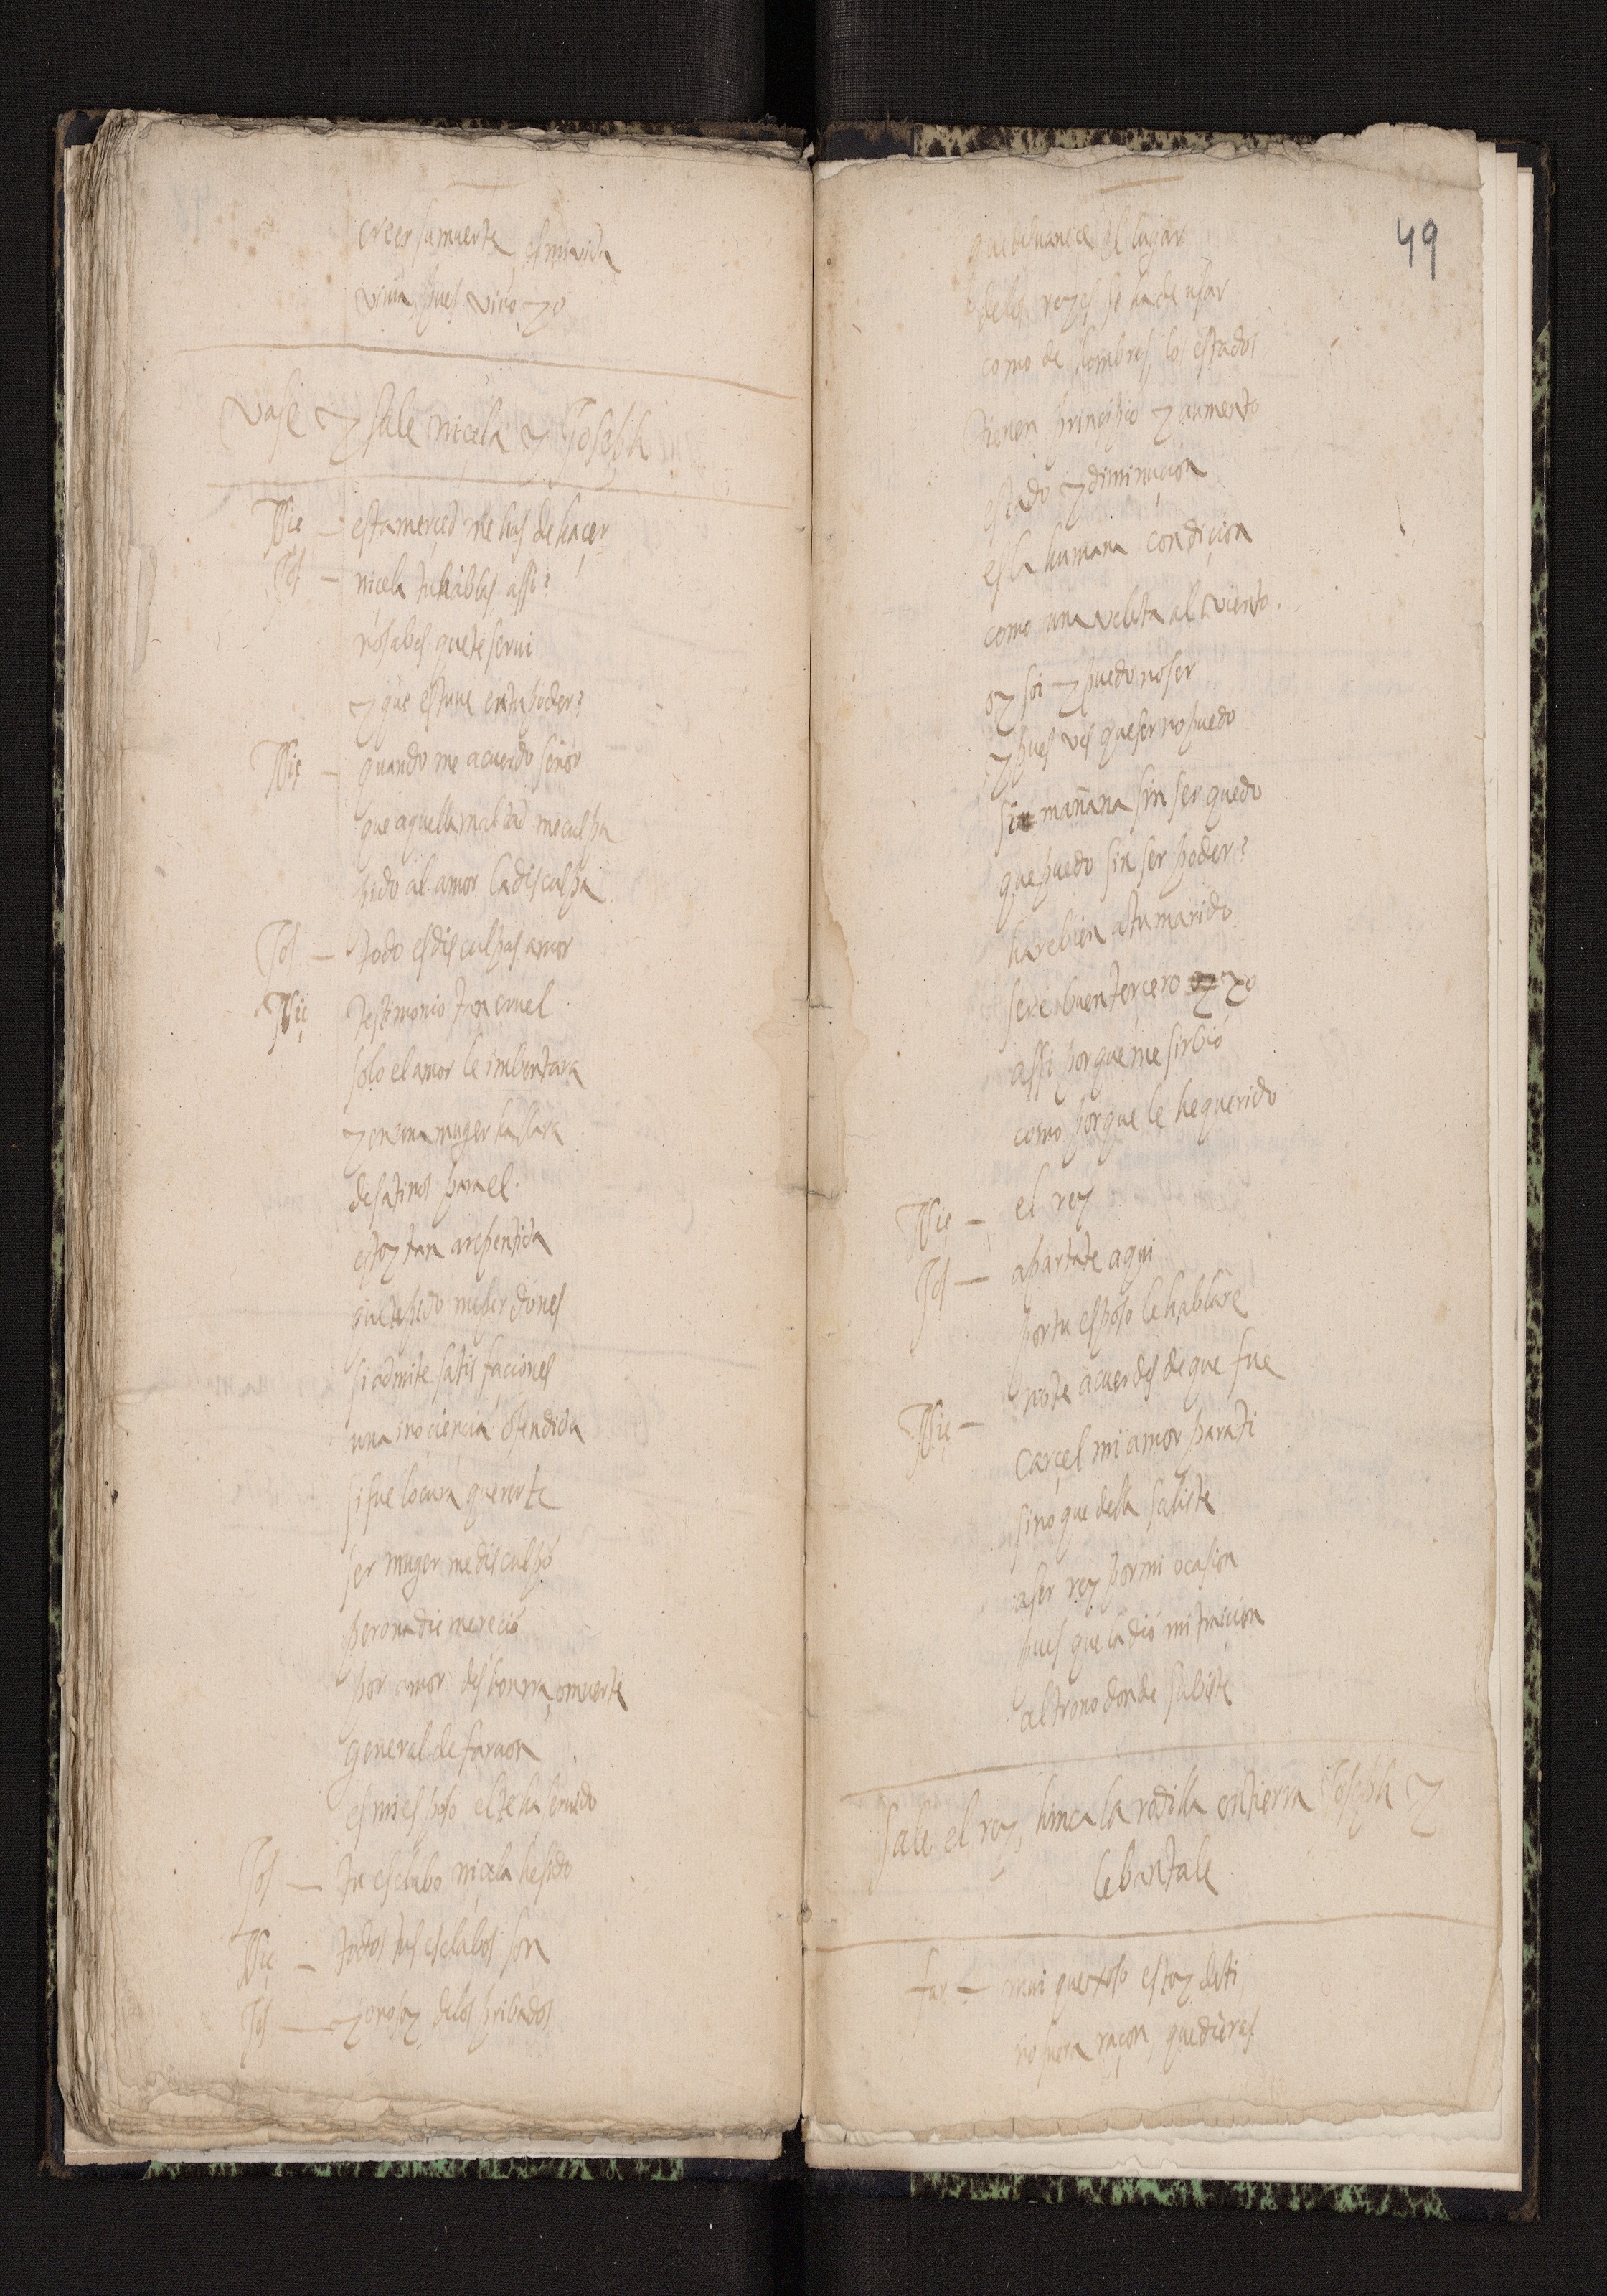 creer su muerte es mi vida
viua pues viuo yo
vase y sale nicela y Joseph
Nic — esta merçed me has de haçer
Jos — niçela tu hablas assi?
no sabes que te serui
y que estuue en tu poder?
Nic — quando me acuerdo señor
que aquella maldad me culpa
pido al amor la disculpa
Jos — todo es disculpas amor
Nic testimonio tan cruel
solo el amor le imbentara
y en una muger hallara
desatinos para el.
estoy tan arepentida
que te pido me perdones
si admite satisfaciones
una inociencia ofendida
si fue locura quererte
ser muger me disculpó
pero nadie mereció
por amor deshonrra, o muerte
general de faraon
es mi esposo el te ha seruido
Jos — tu esclabo niçela he sido
Nic — todos tus esclabos son
Jos — yo no soy de los pribados
49
que desuanece el lugar
de los reyes se ha de usar
como de hombres, los estados
tienen prinçipio y aumento
estado y diminuçion
es la humana condiçion
como una veleta al viento.
oy soi y puedo no ser
y pues ves que ser no puedo
si mañana sin ser quedo
que puedo sin ser poder?
hare bien a tu marido
seré buen tercero yo
assi porque me sirbió
como porque le he querido
Nic — el rey
Jos — apartate aqui
por tu esposo le hablaré
Nic — no te acuerdes de que fue
carçel mi amor para ti
sino que della saliste
a ser rey por mi ocasion
pues que la dió mi traicion
al trono donde subiste
sale el rey, hinca la rodilla en tierra Joseph y
lebantale
far — mui quexoso estoy de ti
no fuera raçon que dieras